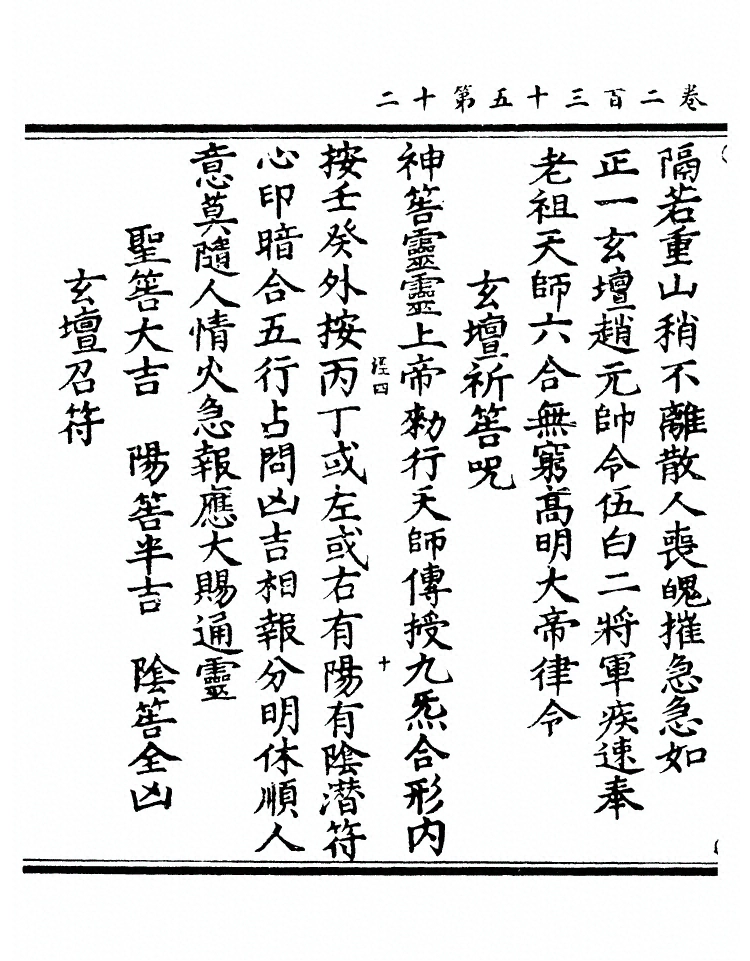 卷二百三十五第十二
隔若重山稍不離散人喪魄摧急急如
正一玄壇趙元帥令伍白二將軍疾速奉
老祖天師六合無窮高明大帝律令
玄壇祈筶呪
神筶靈靈上帝勑行天師傳授九炁合形内
經四
十
按壬癸外按丙丁或左或右有陽有陰潜符
心印暗合五行占問凶吉相報分明休順人
意莫隨人情火急報應大賜通靈
聖筶大吉 陽筶半吉 陰筶全凶
玄壇召符